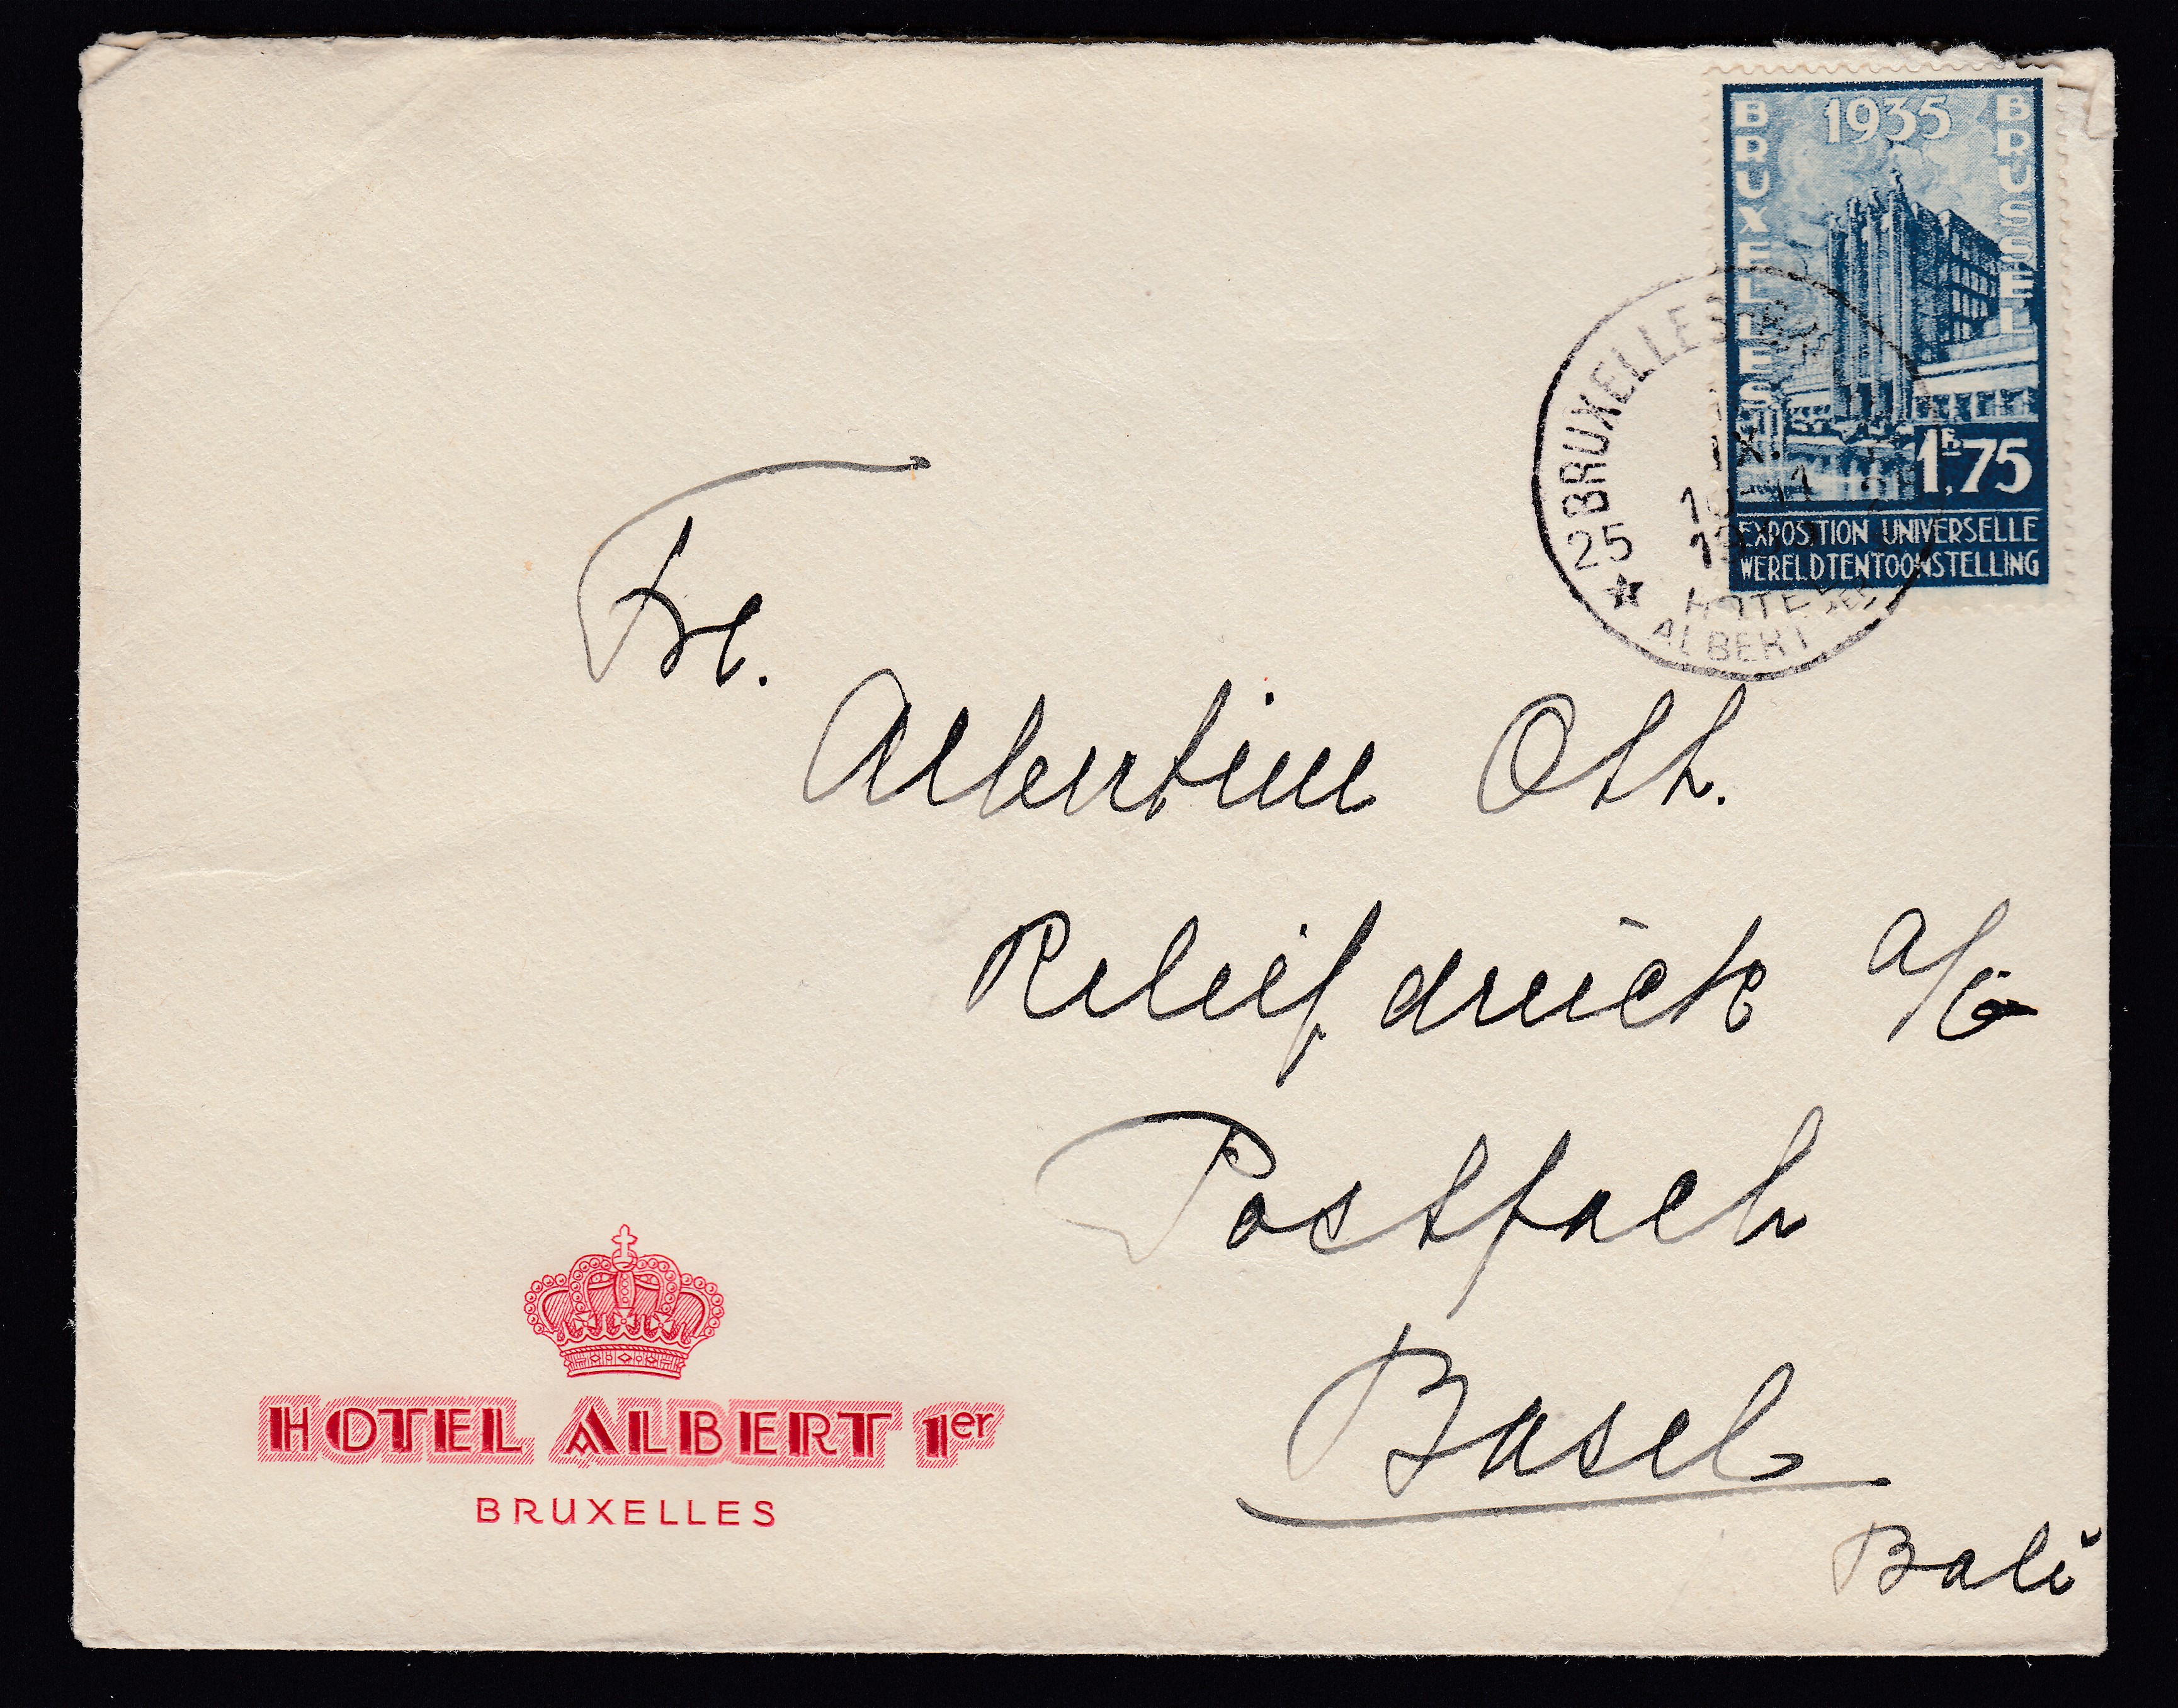 BRUXELLES
1935
BRUSSEL
1F,75
EXPOSITION UNIVERSELLE
WERELDTENTOONSTELLING
BRUXELLES
IX
10-11
25
HOTEL
ALBERT 1ER
Frl.
Albertine Ott.
Reliefdruck A/G
Postfach
Basel
Bali
HOTEL ALBERT 1er
BRUXELLES